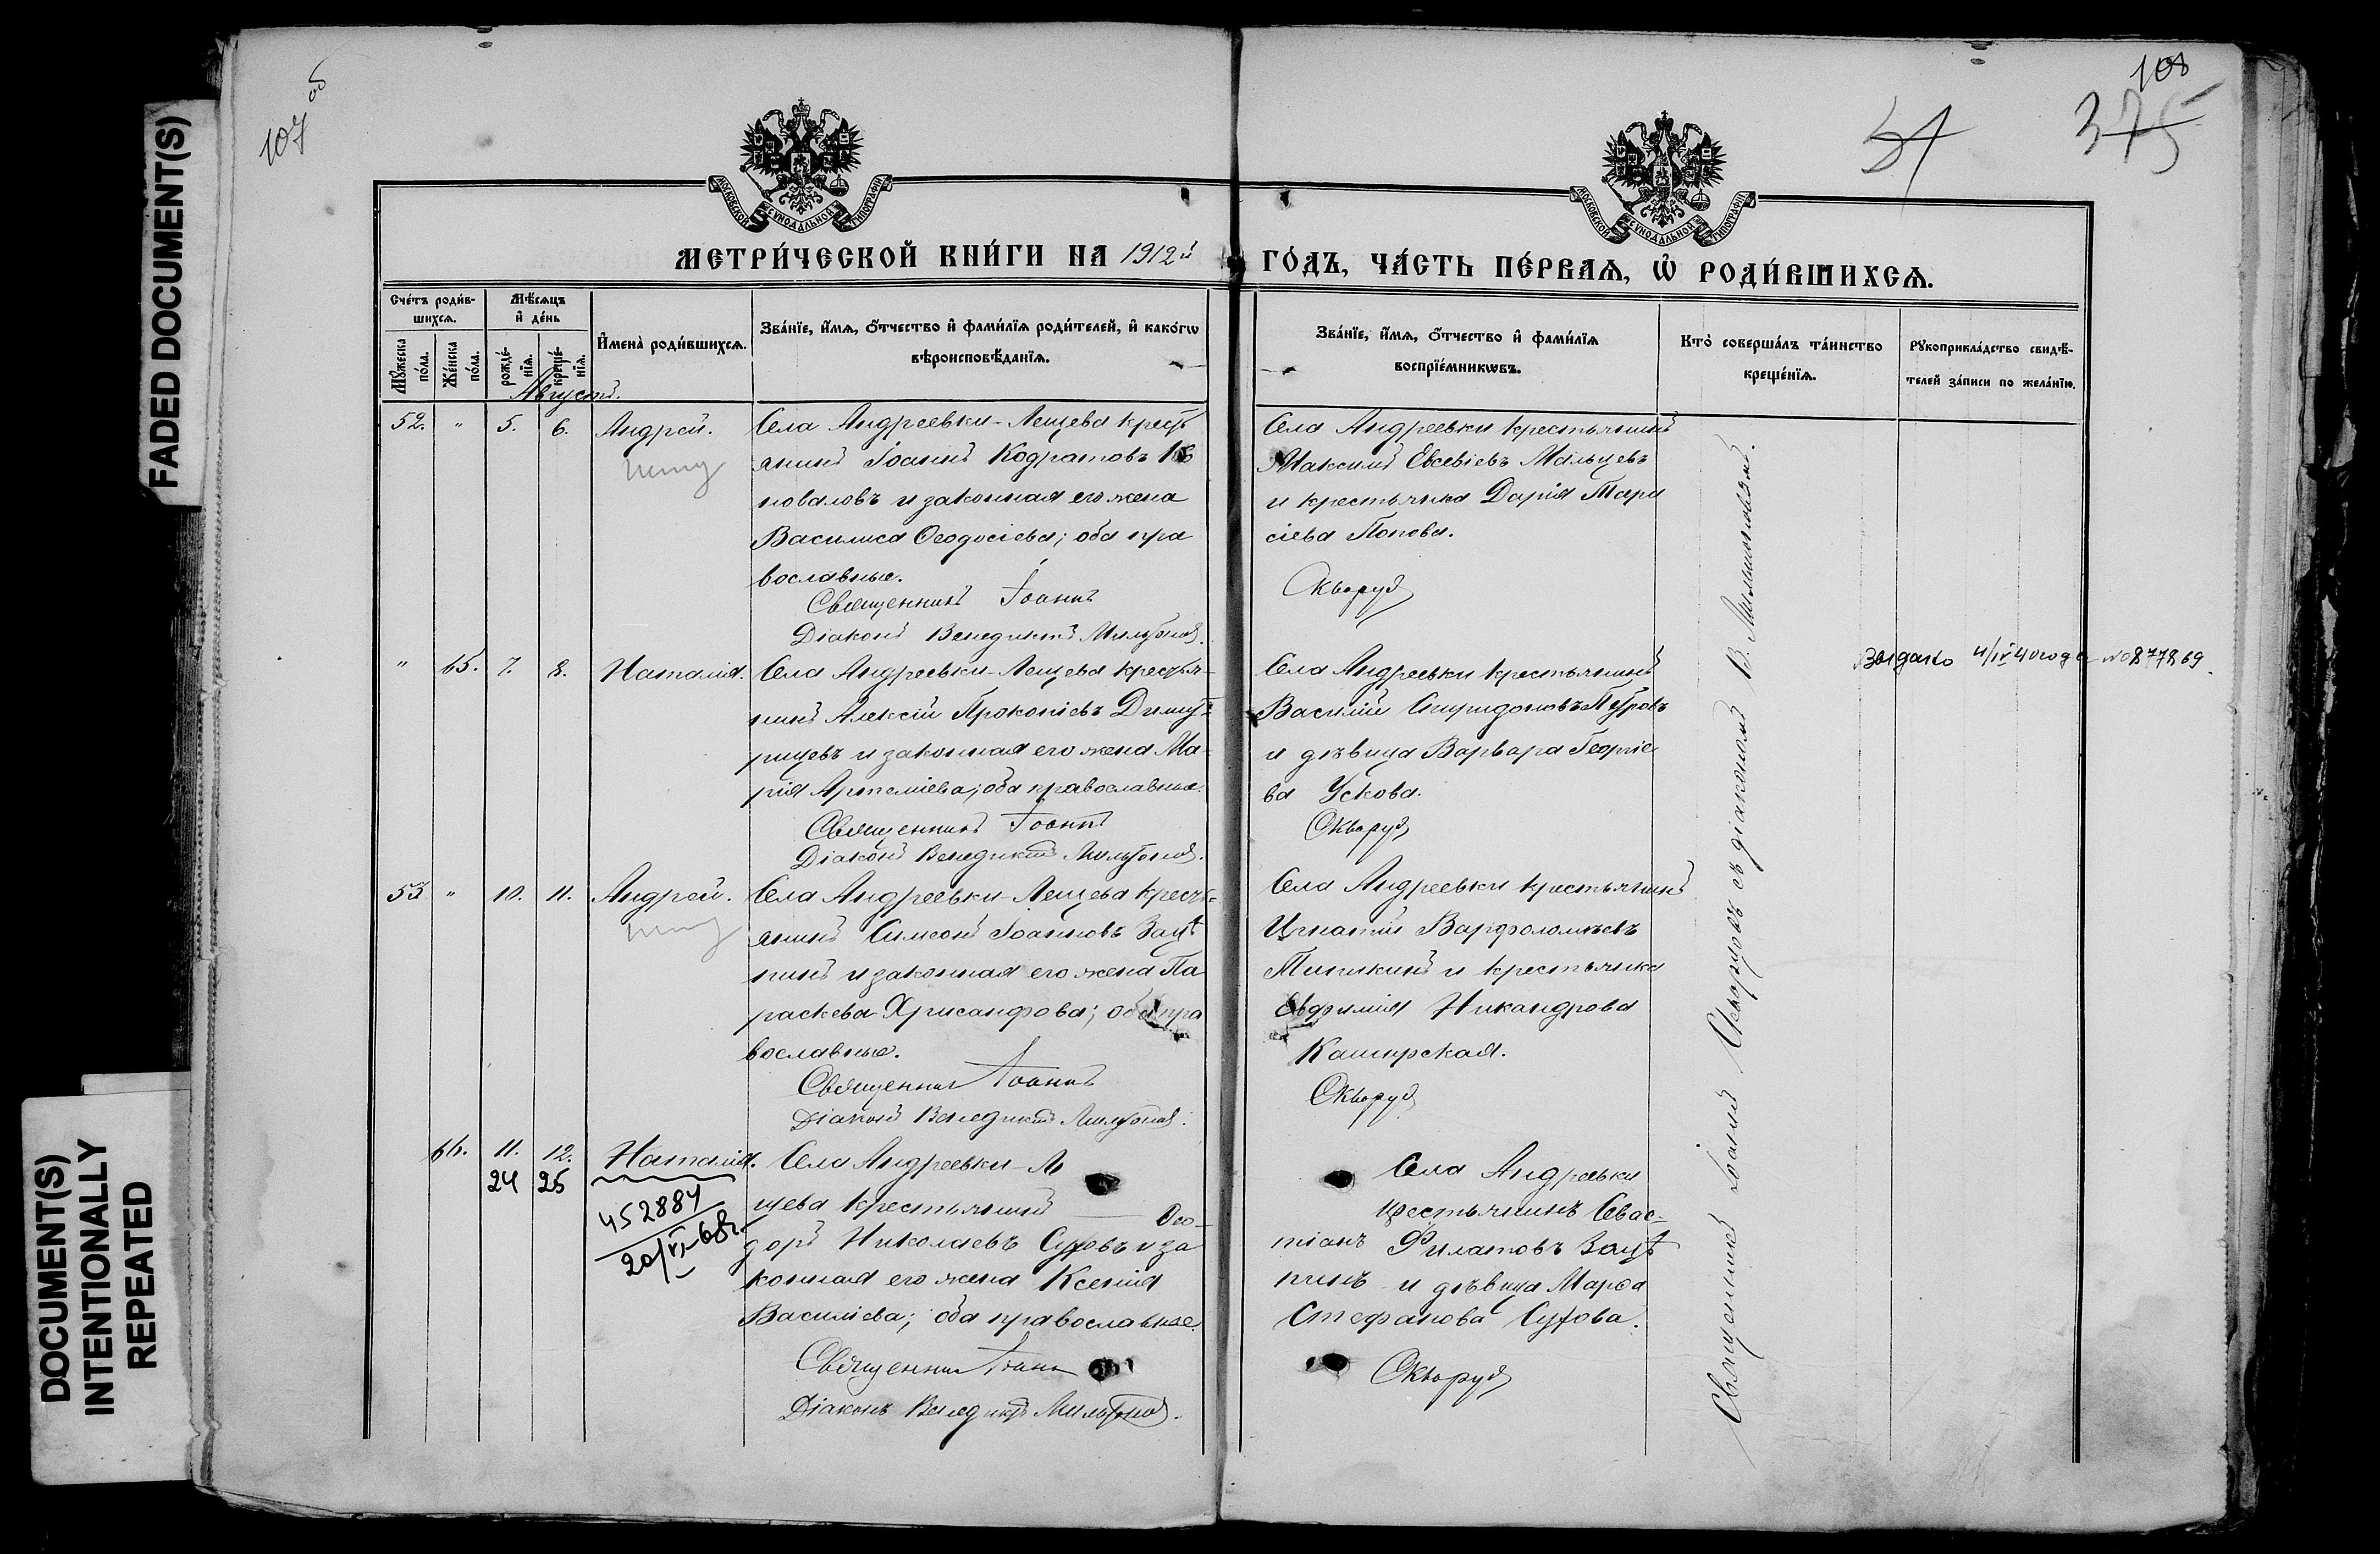 FADED DOCUMENT(S)
DOCUMENT(S)
INTENTIONALLY
REPEATED
107 об
108
375
МОСКОВСКОЙ СУНОДАЛЬНОЙ ТИПОГРАФІИ
МОСКОВСКОЙ СУНОДАЛЬНОЙ ТИПОГРАФІИ
МЕТРИ́ЧЕСКОЙ КНИ́ГИ НА 1912й ГО́ДЪ, ЧА́СТЬ ПЕ́РВАЯ, Ѡ҆ РОДИ́ВШИХСЯ.
Сче́тъ роди́в-
шихся.
Му́жеска по́ла.
Же́нска по́ла.
Мѣ́сяцъ
и҆ де́нь
рожде́-
нїя.
креще́-
нїя.
И҆мена̀ роди́вшихся.
Зва́нїе, и҆́мя, ѻ҆́тчество и҆ фами́лїя роди́телей, и҆ како́гѡ
вѣроисповѣ́данїя.
Зва́нїе, и҆́мя, ѻ҆́тчество и҆ фами́лїя
воспрїе́мникѡвъ.
Кто̀ соверша́лъ та́инство
креще́нїя.
Рꙋкоприкла́дство свидѣ́-
телей за́писи по жела́нїю.
Августъ.
52. " 5. 6. Андрей.
Села Андреевки-Лещева крест
янинъ Іоаннъ Кодратовъ Ко
новаловъ и законная его жена
Василиса Ѳеодосіева; оба пра
вославные.
Священникъ Іоаннъ
Діаконъ Венедиктъ Мильтонов.
Села Андреевки крестьянинъ
Максимъ Евсевіевъ Мальцевъ
и крестьянка Дарія Тара
сіева Попова.
Скворцов
" 65. 7. 8. Наталія.
Села Андреевки-Лещева крестья-
нинъ Алексій Прокопіевъ Димит-
рицевъ и законная его жена Ма-
рія Артеміева; оба православные.
Священникъ Іоаннъ
Діаконъ Венедиктъ Мильтонов.
Села Андреевки крестьянинъ
Василій Спиридоновъ Петровъ
и дѣвица Варвара Георгіе
ва Ускова.
Скворцов
Выдано 4/IV 40 года № 877869
53 " 10. 11. Андрей.
Села Андреевки-Лещева кресть-
янинъ Симеонъ Іоанновъ Зацѣ
пинъ и законная его жена Па
раскева Хрисанфова; оба пра
вославные.
Священник Іоаннъ
Діаконъ Венедиктъ Мильтонов.
Села Андреевки крестьянинъ
Игнатій Варфоломѣевъ
Пипикинъ и крестьянка
Евфимія Никандрова
Каширская.
Скворцов
66. 11. 12. Наталія.
24 25
452884
20/VI-68г.
Села Андреевки-Ле
щева крестьянинъ Ѳео-
доръ Николаевъ Суховъ и за
конная его жена Ксенія
Василіева; оба православные.
Священник Іоанн
Діаконъ Венедиктъ Мильтонов.
Села Андреевки
крестьянинъ Севас-
тіанъ Филатовъ Зацѣ
пинъ и дѣвица Марѳа
Стефанова Сухова.
Скворцов
Священникъ Іоаннъ Скворцовъ съ діакономъ В. Мильтоновымъ.